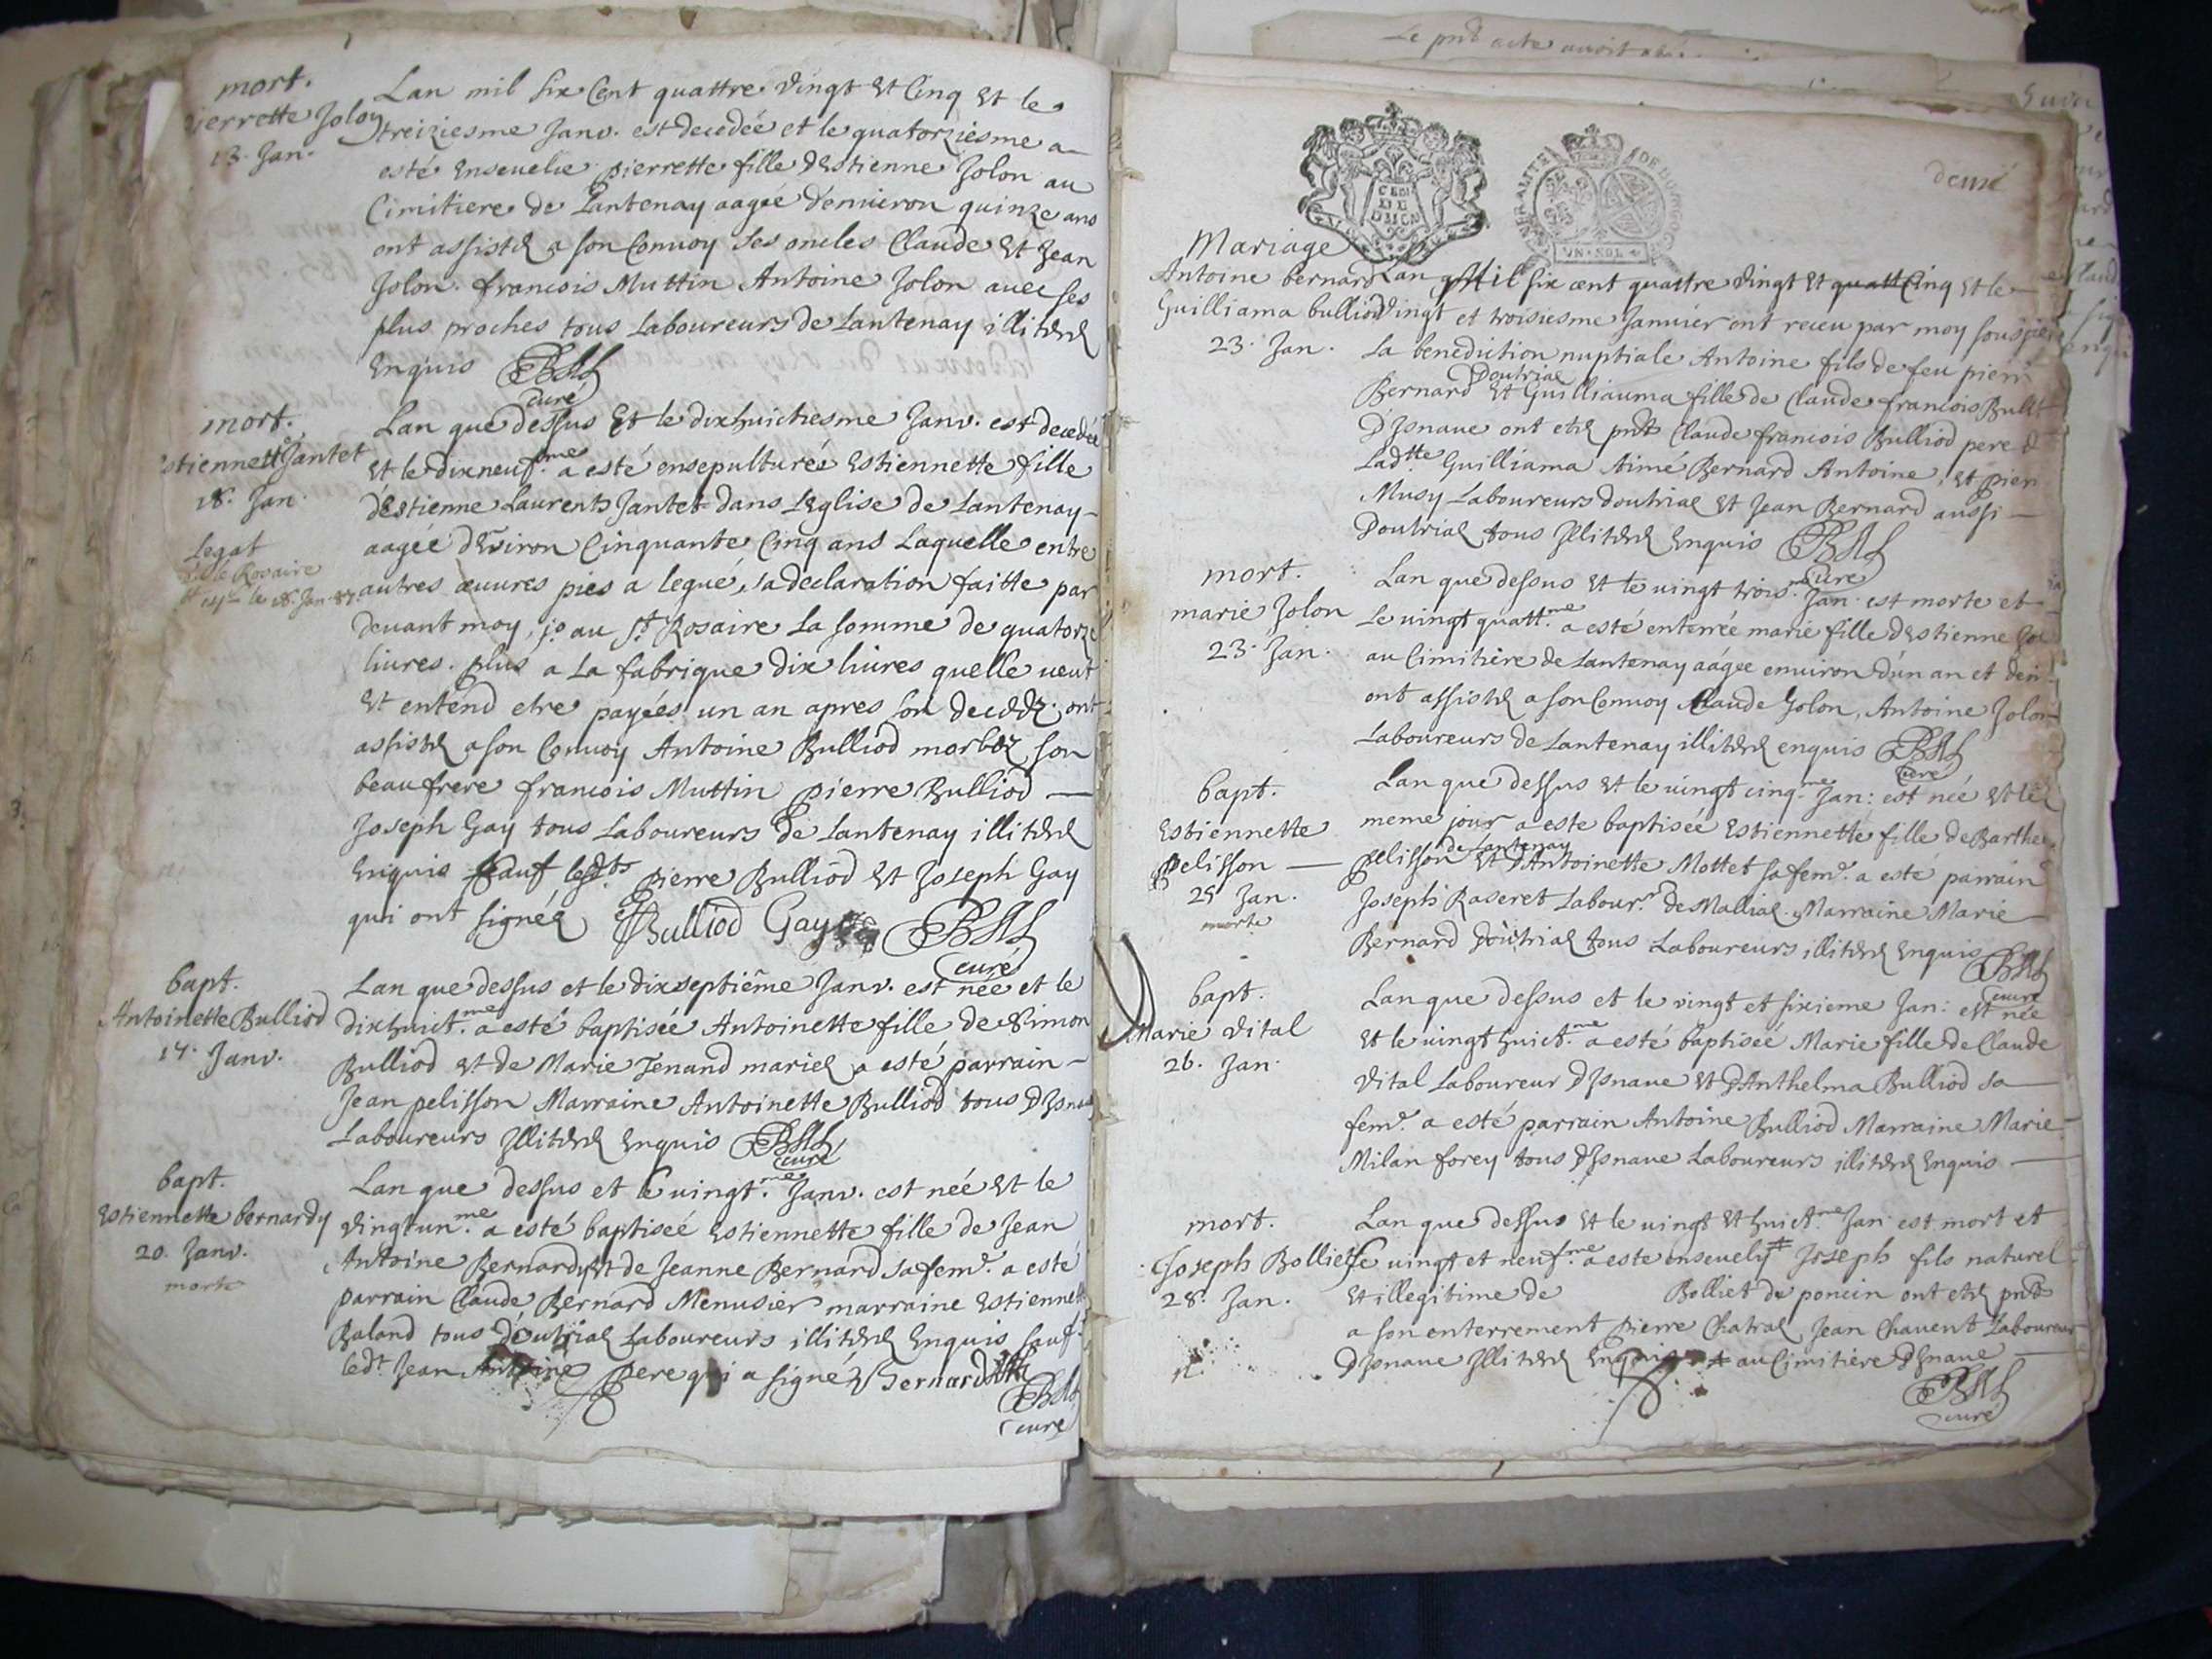 mort.
pierrette Jolon
13. Jan.
Lan mil six Cent quattre vingt Et Cinq Et le
treiziesme Janv. est decedée et le quatorziesme a
esté Enseuelie pierrette fille dEstienne Jolon au
Cimitiere de Lantenay aagée d'enuiron quinze ans
ont assistéz a son Conuoy ses oncles Claude Et Jean
Jolon. francois Muttin Antoine Jolon auec ses
plus proches tous Laboureurs de Lantenay illiterez
Enquis
curé
mort.
Estiennette Jantet
18. Jan.
Legat
le Rosaire
Lan que dessus Et le dixhuictiesme Janv. est decedée
Et le dixneufme a esté ensepulturée Estiennette fille
dEstienne Laurent Jantet dans LEglise de Lantenay
aagée dEviron Cinquante Cinq ans Laquelle entre
autres œuures pies a legué, sa declaration faitte par
deuant moy, jo au St Rosaire La somme de quatorze
liures. plus a La fabrique dix liures quelle ueut
Et entend etre payées un an apres son decedz. ont
assistéz a son Conuoy Antoine Bulliod morboz son
beaufrere francois Muttin pierre Bulliod
Joseph Gay tous Laboureurs de Lantenay illiterez
Enquis sauf lesdts pierre Bulliod Et Joseph Gay
qui ont signéz Bulliod Gay
curé
bapt.
Antoinette Bulliod
17. Janv.
Lan que dessus et le dixseptième Janv. est née et le
dixhuict.me a esté baptisée Antoinette fille de Simon
Bulliod Et de Marie Tenand mariez a esté parrain
Jean pelisson Marraine Antoinette Bulliod tous
Laboureurs Illiterez Enquis
curé
bapt.
Estiennette bernardy
20. Janv.
morte
Lan que dessus et le uingt.me Janv. est née Et le
vingtun.me a esté baptisée Estiennette fille de Jean
Antoine Bernardy Et de Jeanne Bernard sa fem.e a esté
parrain Claude Bernard Menusier marraine Estiennette
Baland tous doutriaz Laboureurs illiterez Enquis sauf
ledt Jean Antoine pere qui a signé
curé
Le pnt acte
GENERALITE DE BOURGOGNE
UN·SOL
Mariage
Antoine bernard
Guilliama bulliod
23. Jan.
Lan Mil six cent quattre vingt Et quatt Cinq Et le
vingt et troisiesme Januier ont receu par moy
La benediction nuptiale Antoine fils de feu
Doutriaz
Bernard Et Guilliauma fille de Claude francois
DIsnaue ont etéz pnts Claude francois Bulliod pere d
Ladtte Guilliama Aimé Bernard Antoine, Et
Musy Laboureurs doutriaz Et Jean Bernard aussi
Doutriaz tous Illiterez Enquis
curé
mort.
marie Jolon
23. Jan.
Lan que dessus Et le uingt trois.me Jan. est morte et
Le uingt quatt.me a esté enterrée marie fille dEstienne
au Cimitière de Lantenay aagée enuiron dun an et
ont assistéz a son Conuoy Claude Jolon, Antoine Jolon
Laboureurs de Lantenay illiterez enquis
curé
bapt.
Estiennette
pelisson
25 Jan.
morte
Lan que dessus Et le uingt cinq.me Jan: est née Et le
meme jour a este baptisée Estiennette fille de
de Lantenay
pelisson Et dAntoinette Mottet sa fem.e a esté parrain
Joseph Raseret Labour.r de Malliaz. Marraine Marie
Bernard Doutriaz tous Laboureurs illiterez Enquis
curé
bapt.
Marie vital
26. Jan.
Lan que dessus et le vingt et sixieme Jan: est née
Et le uingt huict.me a esté baptisée Marie fille de Claude
vital Laboureur DIsnaue Et dAnthelma Bulliod sa
fem.e a esté parrain Antoine Bulliod Marraine Marie
Milan forey tous dIsnaue Laboureurs illiterez Enquis
mort.
Joseph Bolliet
28. Jan.
Lan que dessus Et le uingt Et huict.me Jan. est mort et
Le uingt et neuf.me a este enseuely Joseph fils naturel
Et illegitime de Bolliet de poncin ont etéz pnts
a son enterrement pierre Chatraz Jean Chauent Laboureurs
DIsnaue Illiterez Enquis au Cimitière
curé